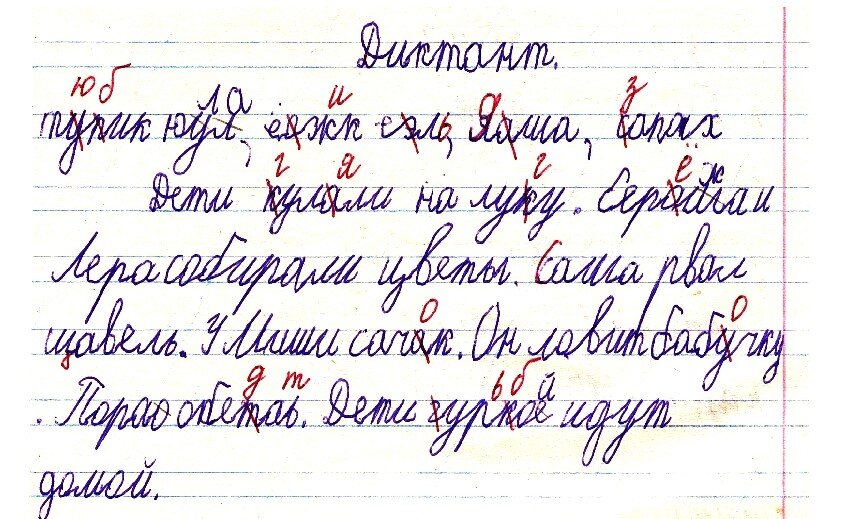 Диктант.
тупик юул, ёжжк сэль, Яаша, сапах
Дети кулали на луку. Сероажаи
Лера собирали цветы. Саша рвал
щавель. У Миши сачак. Он ловит бабучку
. Пора обетаь. Дети гуркой идут
домой.